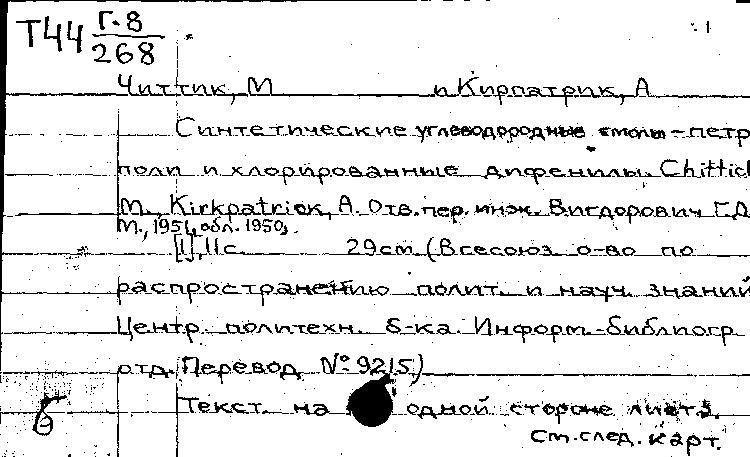 Т44 Г-8 : 1
268
Читтик, М и Кирпатрик, А
Синтетические углеводородные смолы-петро
поли и хлорированные дифенилы. Chittick
М., Kirkpatrick, А. Отв.пер. инж. Вигдорович Г.Д.
М., 1951, обл. 1950.
[I], 11с 29см. (Всесоюз. о-во по
распространению полит. и науч. знаний
Центр. политехн. б-ка. Информ.-библиогр
отд. Перевод № 9215)
Текст. на одной стороне листа.
б См. след. карт.